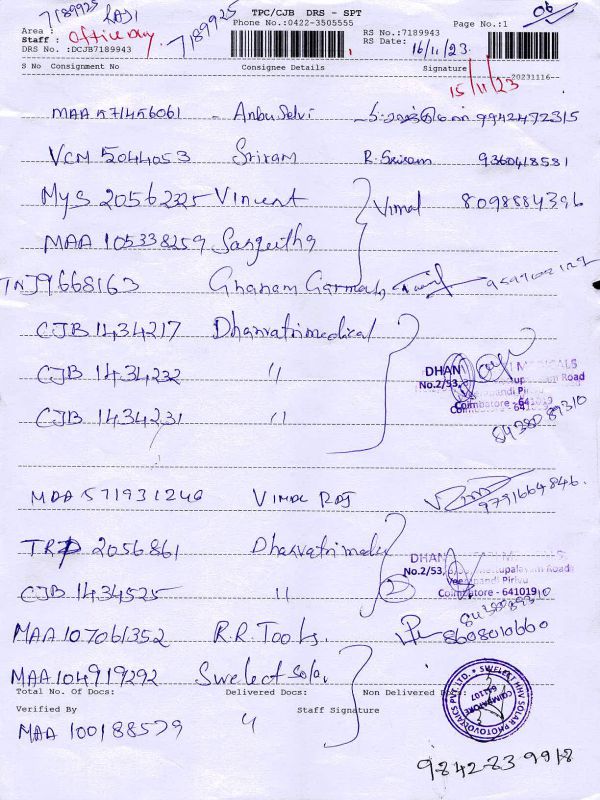 7189925 RAJI
7189925
06
TPC/CJB DRS - SPT
Page No.:1
Phone No.:0422-3505555
RS No.:7189943
RS Date: 16/11/23
Area :
Staff : Office Duty
DRS No. :DCJB7189943
S No Consignment No Consignee Details Signature
15/11/23
--20231116--
MAA 571456061 - Anbu Selvi 9942472315
VCM 5044053 Sriram R. Sriram 9360418531
MYS 20562325 Vincent Vimal 8098884396
MAA 105338259 Sangeetha
TNJ9668163 Gnanam Garments
CJB 1434217 Dhanvatrimedical
CJB 1434232 "
DHAN MEDICALS
No.2/53, Mettupalayam Road
Veerapandi Pirivu
Coimbatore - 641019
CJB 1434231 "
84380 89310
MAA 571931246 VIMAL RAJ 9791664846
TRP 2056861 Dhanvatrimedi
DHAN
No.2/53, Mettupalayam Road
Veerapandi Pirivu
Coimbatore - 641019
CJB 1434525 " 2
8438089310
MAA 107061352 R.R. Tools. 8608010660
MAA 104919292 Swelect Solar
Total No. Of Docs: Delivered Docs: Non Delivered Docs:
Verified By Staff Signature
MAA 100188579 "
SWELECT HHV SOLAR PHOTOVOLTAICS PVT LTD.
COIMBATORE
641107
9842839918